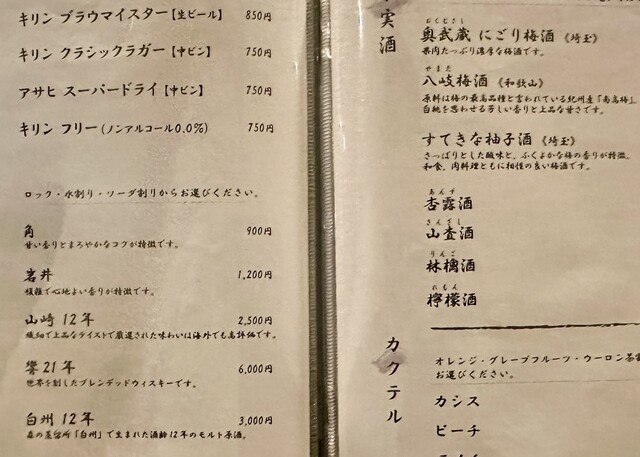 キリン ブラウマイスター【生ビール】 850円
キリン クラシックラガー【中ビン】 750円
アサヒ スーパードライ【中ビン】 750円
キリン フリー(ノンアルコール0.0%) 750円
ロック・水割り・ソーダ割りからお選びください。
角 900円
甘い香りとまろやかなコクが特徴です。
岩井 1,200円
複雑で心地よい香りが特徴です。
山崎 12年 2,500円
繊細で上品なテイストで厳選された味わいは海外でも高評価です。
響21年 6,000円
世界を制したブレンデッドウィスキーです。
白州 12年 3,000円
森の蒸留所「白州」で生まれた酒齢12年のモルト原酒。
実酒
おくむさし
奥武蔵 にごり梅酒《埼玉》
果肉たっぷり濃厚な梅酒です。
やまた
八岐梅酒《和歌山》
原料は梅の最高品種と言われている紀州産「南高梅」
白桃を思わせる芳しい香りと上品な甘さです。
すてきな柚子酒《埼玉》
さっぱりとした酸味と、ふくよかな梅の香りが特徴。
和食、肉料理ともに相性の良い梅酒です。
あんず
杏露酒
さんざし
山査酒
りんご
林檎酒
れもん
檸檬酒
カクテル
オレンジ・グレープフルーツ・ウーロン茶
お選びください。
カシス
ピーチ